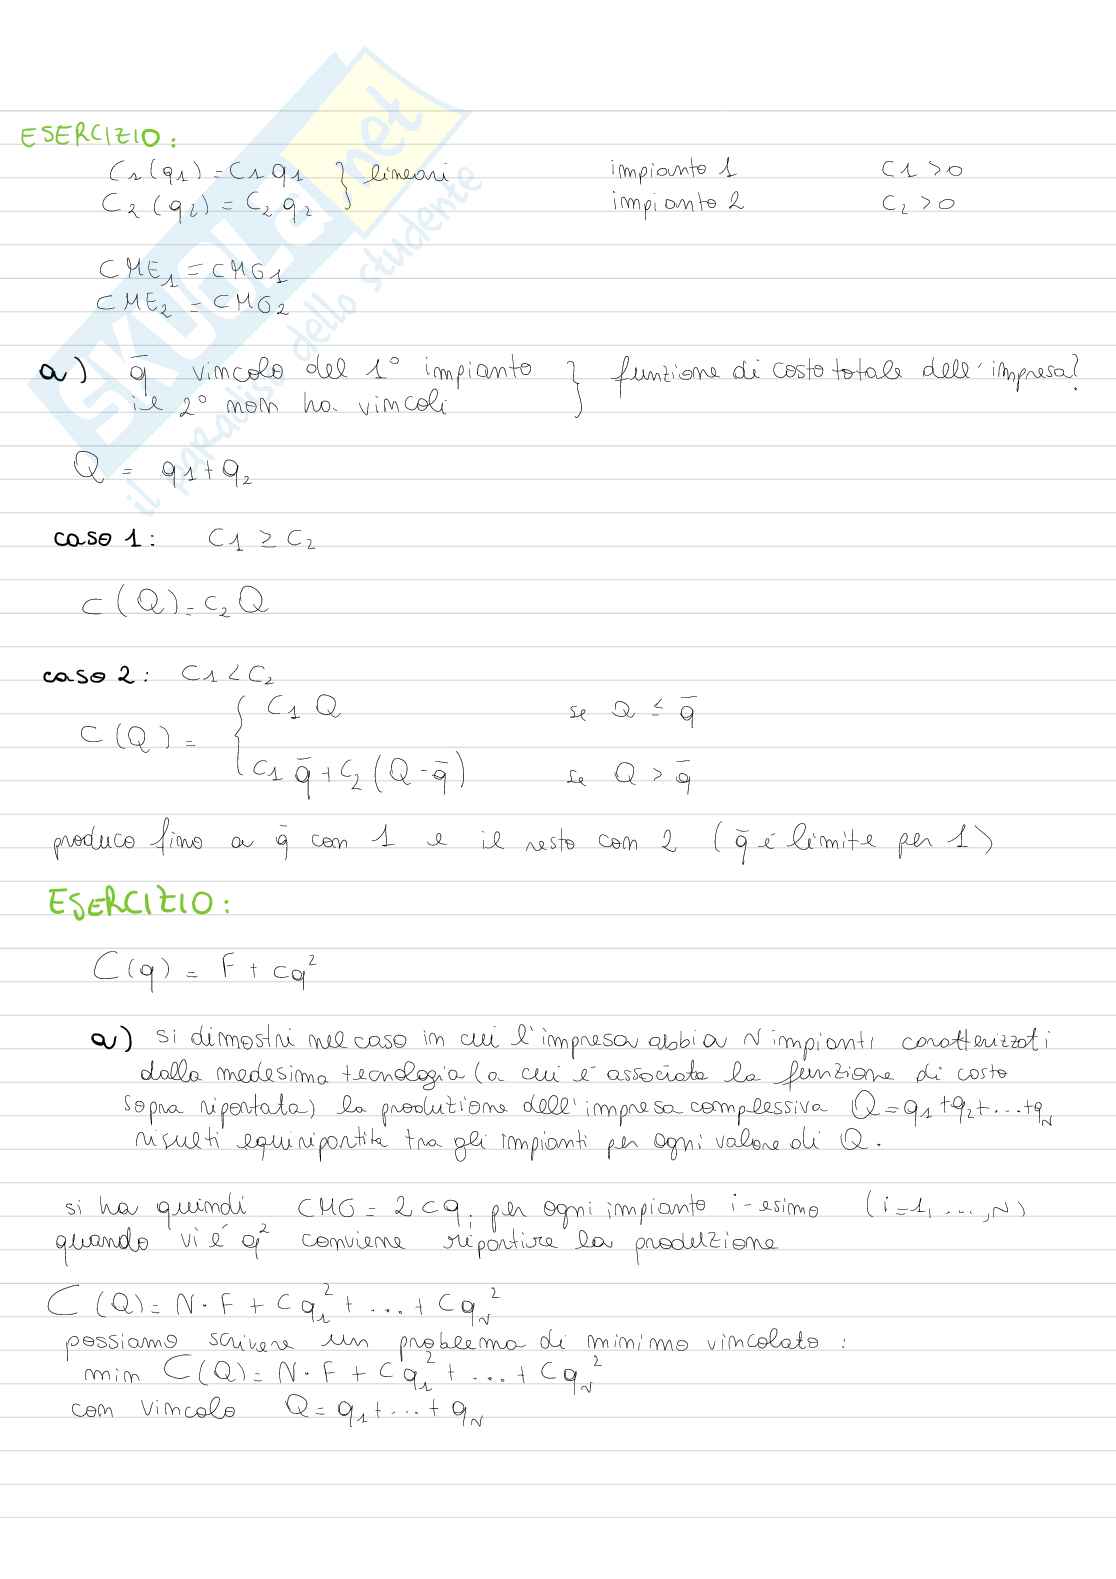 ESERCIZIO:
C1(q1) = C1 q1 } lineari impianto 1 C1 > 0
C2(q2) = C2 q2 impianto 2 C2 > 0
CME1 = CMG1
CME2 = CMG2
a) q̄ vincolo del 1° impianto } funzione di costo totale dell'impresa?
il 2° non ha vincoli
Q = q1 + q2
caso 1: C1 ≥ C2
C(Q) = C2 Q
caso 2: C1 < C2
C(Q) = { C1 Q se Q ≤ q̄
C1 q̄ + C2 (Q - q̄) se Q > q̄
produco fino a q̄ con 1 e il resto con 2 (q̄ è limite per 1)
ESERCIZIO:
C(q) = F + cq²
a) si dimostri nel caso in cui l'impresa abbia N impianti caratterizzati
dalla medesima tecnologia (a cui è associata la funzione di costo
sopra riportata) la produzione dell'impresa complessiva Q = q1 + q2 + ... + qN
risulti equiripartita tra gli impianti per ogni valore di Q.
si ha quindi CMG = 2cqi per ogni impianto i-esimo (i=1, ..., N)
quando vi è q² conviene ripartire la produzione
C(Q) = N·F + Cq1² + ... + CqN²
possiamo scrivere un problema di minimo vincolato:
min C(Q) = N·F + Cq1² + ... + CqN²
con vincolo Q = q1 + ... + qN
SKUOLA.net
il paradiso dello studente